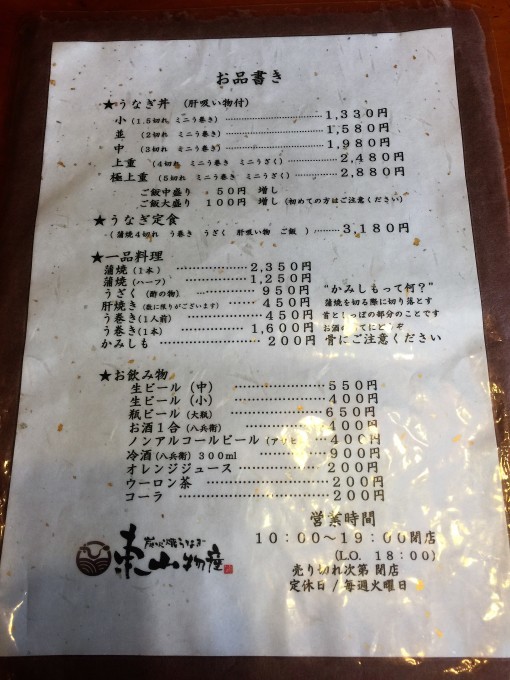 お品書き
★うなぎ丼 (肝吸い物付)
小 (1.5切れ ミニう巻き) 1,330円
並 (2切れ ミニう巻き) 1,580円
中 (3切れ ミニう巻き) 1,980円
上重 (4切れ ミニう巻き ミニうざく) 2,480円
極上重 (5切れ ミニう巻き ミニうざく) 2,880円
ご飯中盛り 50円 増し
ご飯大盛り 100円 増し (初めての方はご注意ください)
★うなぎ定食
(蒲焼4切れ う巻き うざく 肝吸い物 ご飯) 3,180円
★一品料理
蒲焼 (1本) 2,350円
蒲焼 (ハーフ) 1,250円
うざく (酢の物) 950円
肝焼き (数に限りがございます) 450円
う巻き (1人前) 450円
う巻き (1本) 1,600円
かみしも 200円
"かみしもって何?"
蒲焼を切る際に切り落とす
首としっぽの部分のことです
お酒のあてにどうぞ
骨にご注意ください
★お飲み物
生ビール (中) 550円
生ビール (小) 400円
瓶ビール (大瓶) 650円
お酒1合 (八兵衛) 400円
ノンアルコールビール (アサヒ 400円
冷酒 (八兵衛) 300ml 900円
オレンジジュース 200円
ウーロン茶 200円
コーラ 200円
営業時間
10:00〜19:00閉店
(LO. 18:00)
売り切れ次第 閉店
定休日 / 毎週火曜日
炭火焼うなぎ
東山物産